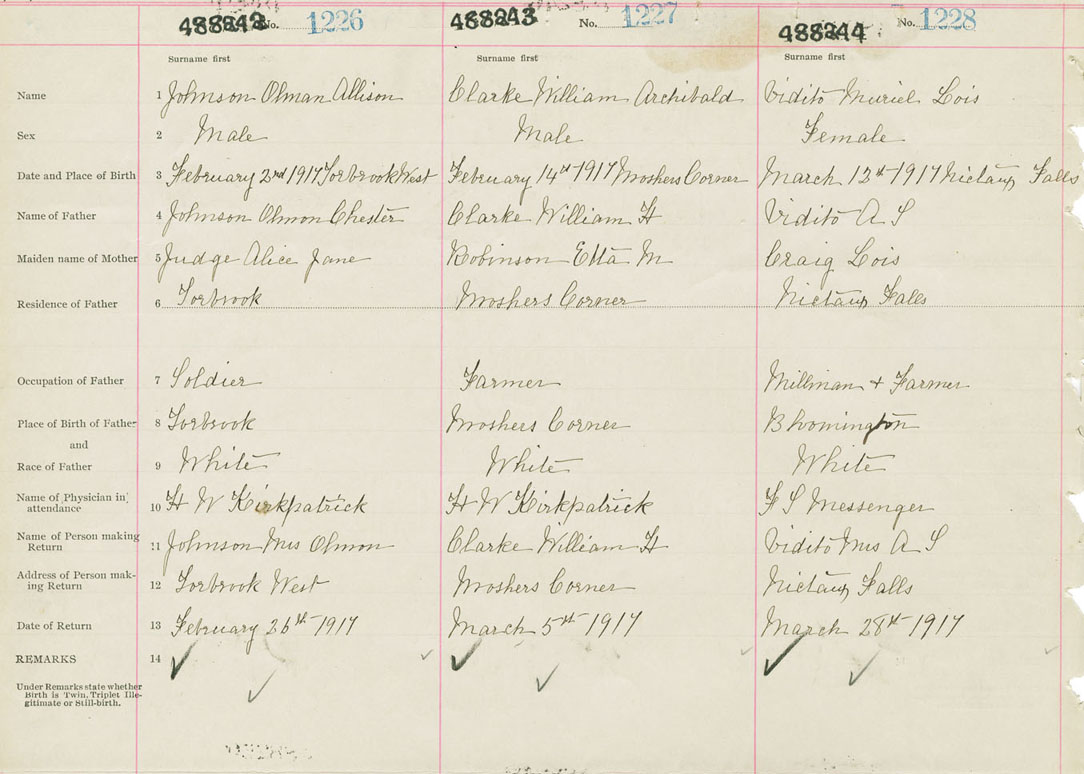 488242 No. 1226 488243 No. 1227 488244 No. 1228
Surname first Surname first Surname first
Name 1 Johnson Olman Allison Clarke William Archibald Vidito Muriel Lois
Sex 2 Male Male Female
Date and Place of Birth 3 February 2nd 1917 Torbrook West February 14th 1917 Moshers Corner March 12th 1917 Nictaux Falls
Name of Father 4 Johnson Olmon Chester Clarke William H Vidito A S
Maiden name of Mother 5 Judge Alice Jane Robinson Etta M Craig Lois
Residence of Father 6 Torbrook Moshers Corner Nictaux Falls
Occupation of Father 7 Soldier Farmer Millman + Farmer
Place of Birth of Father 8 Torbrook Moshers Corner Bloomington
and
Race of Father 9 White White White
Name of Physician in attendance 10 H W Kirkpatrick H W Kirkpatrick F S Messenger
Name of Person making Return 11 Johnson Mrs Olmon Clarke William H Vidito Mrs A S
Address of Person mak-
ing Return 12 Torbrook West Moshers Corner Nictaux Falls
Date of Return 13 February 26th 1917 March 5th 1917 March 28th 1917
REMARKS 14
Under Remarks state whether
Birth is Twin, Triplet Ille-
gitimate or Still-birth.